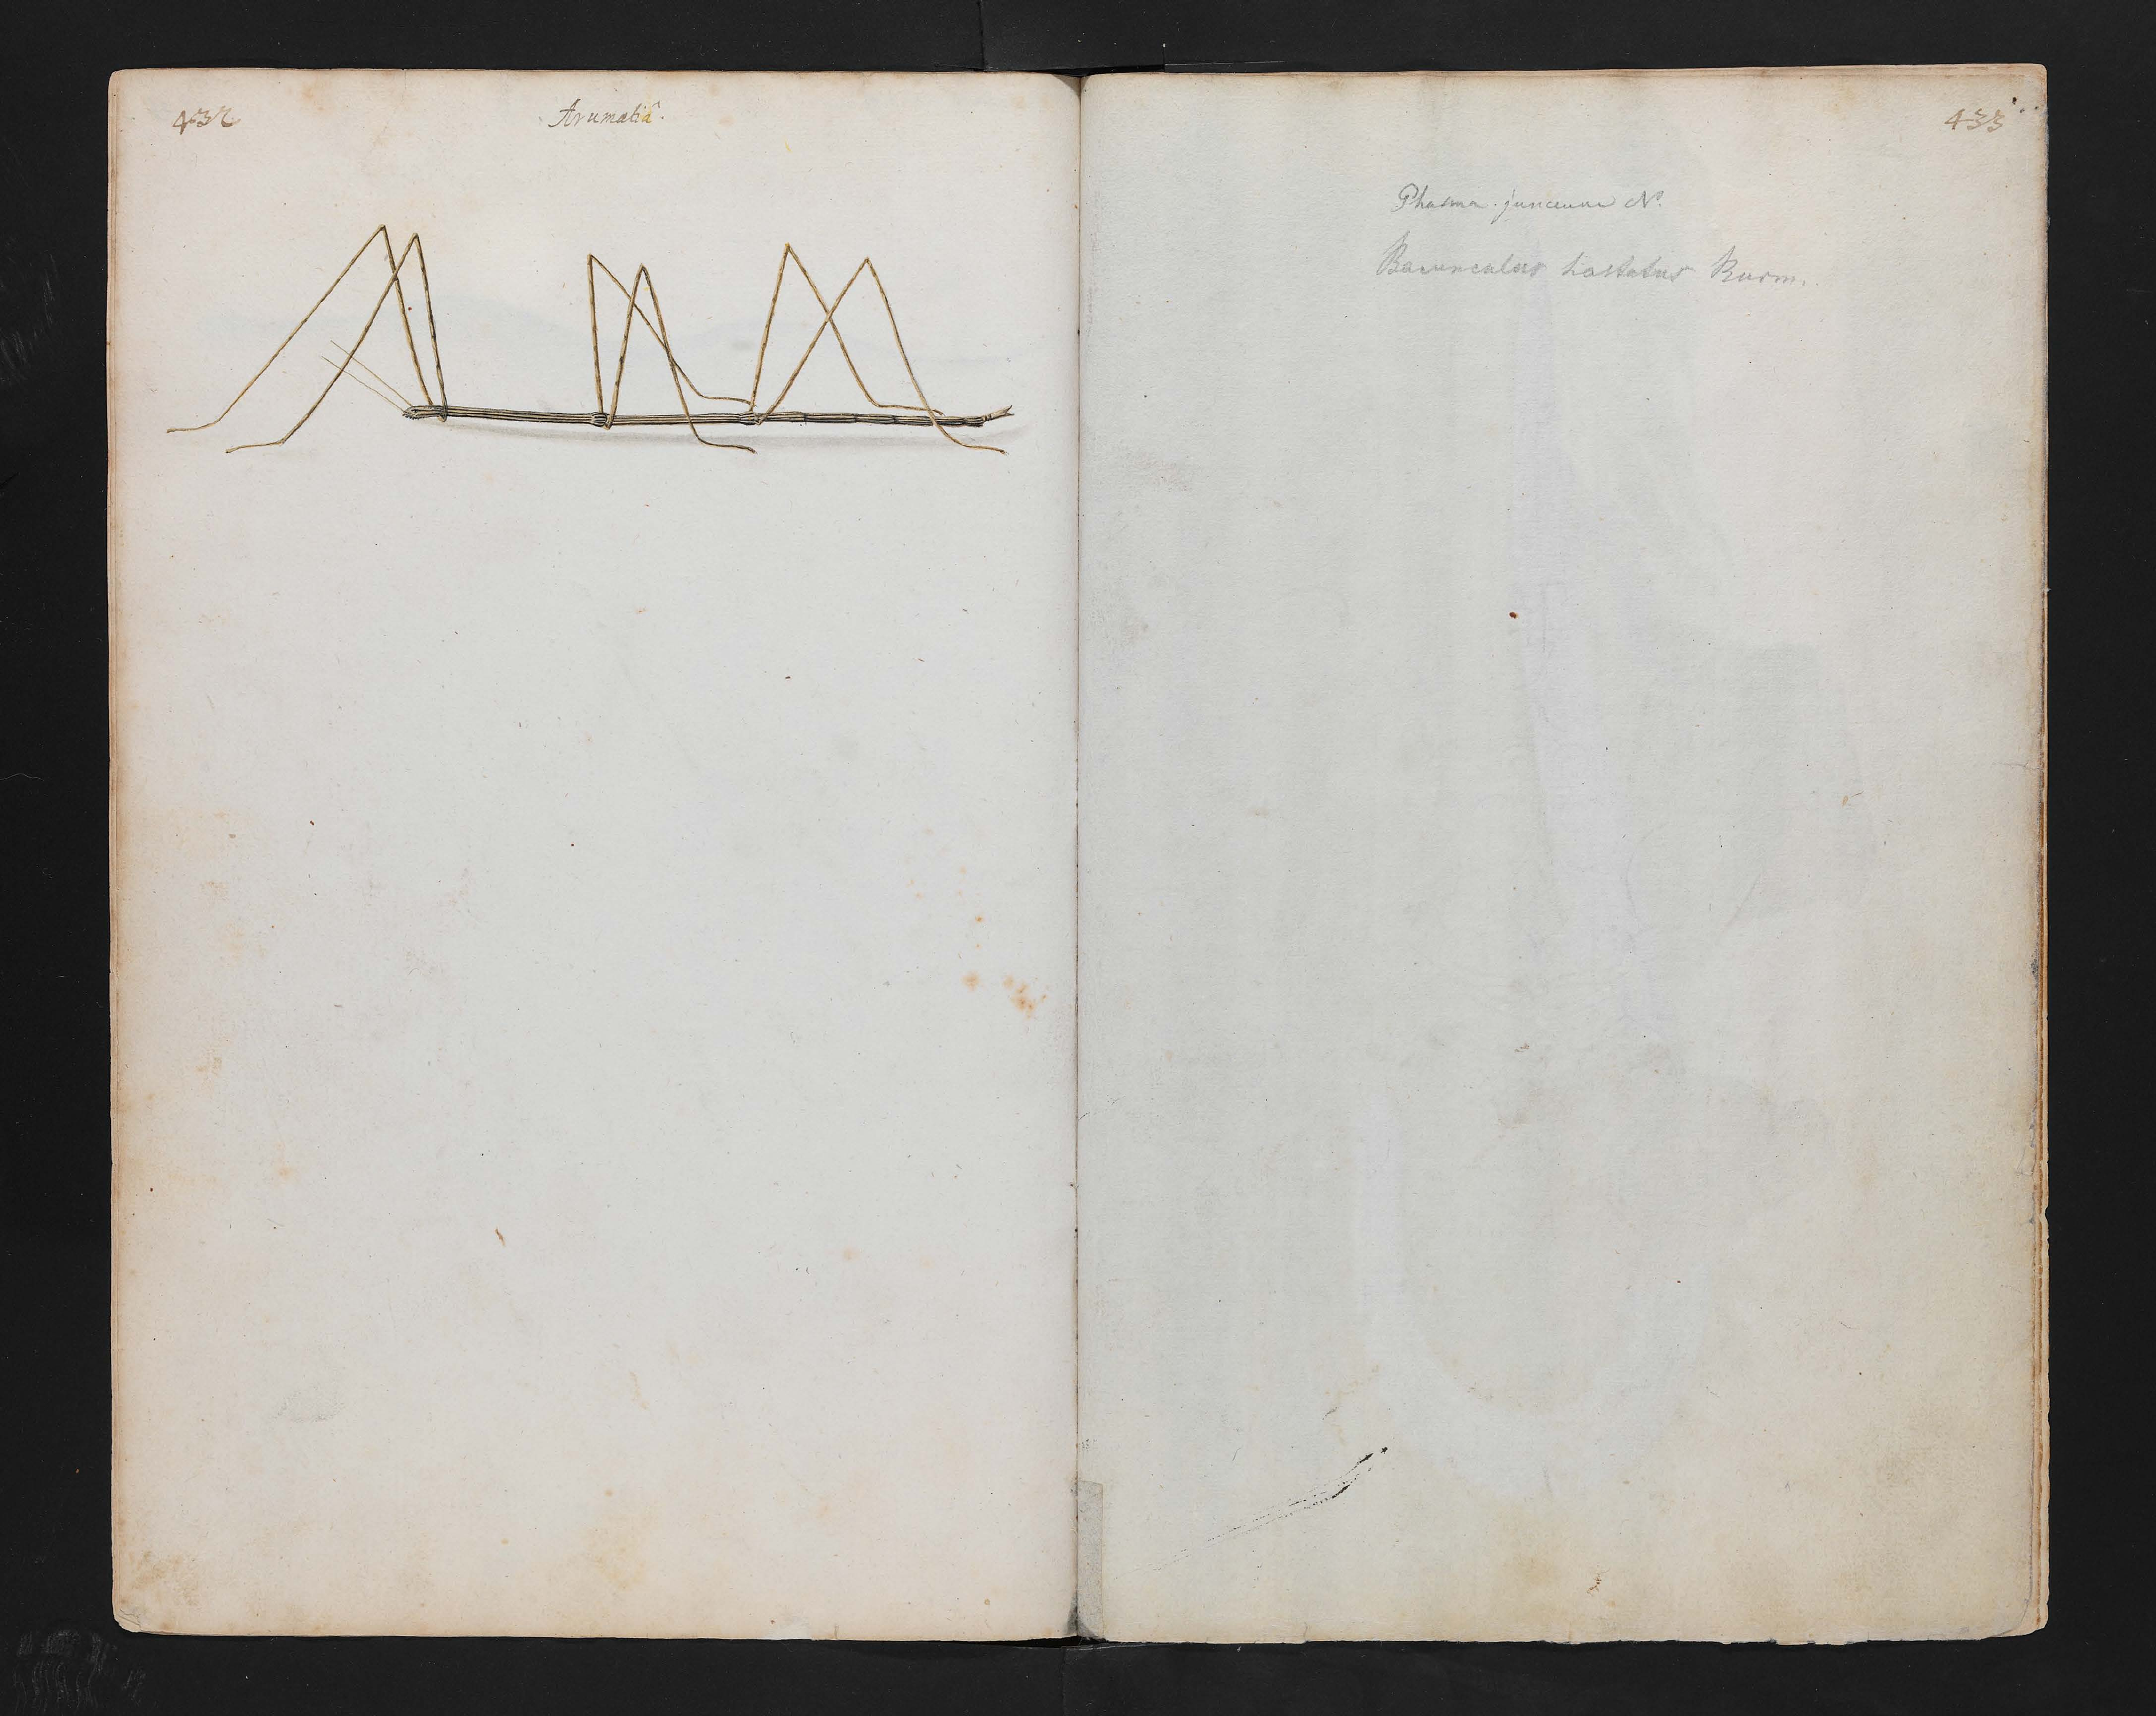 432
Arumatiâ.
433
Phasma junceum N.
Bacunculus hastatus Burm.